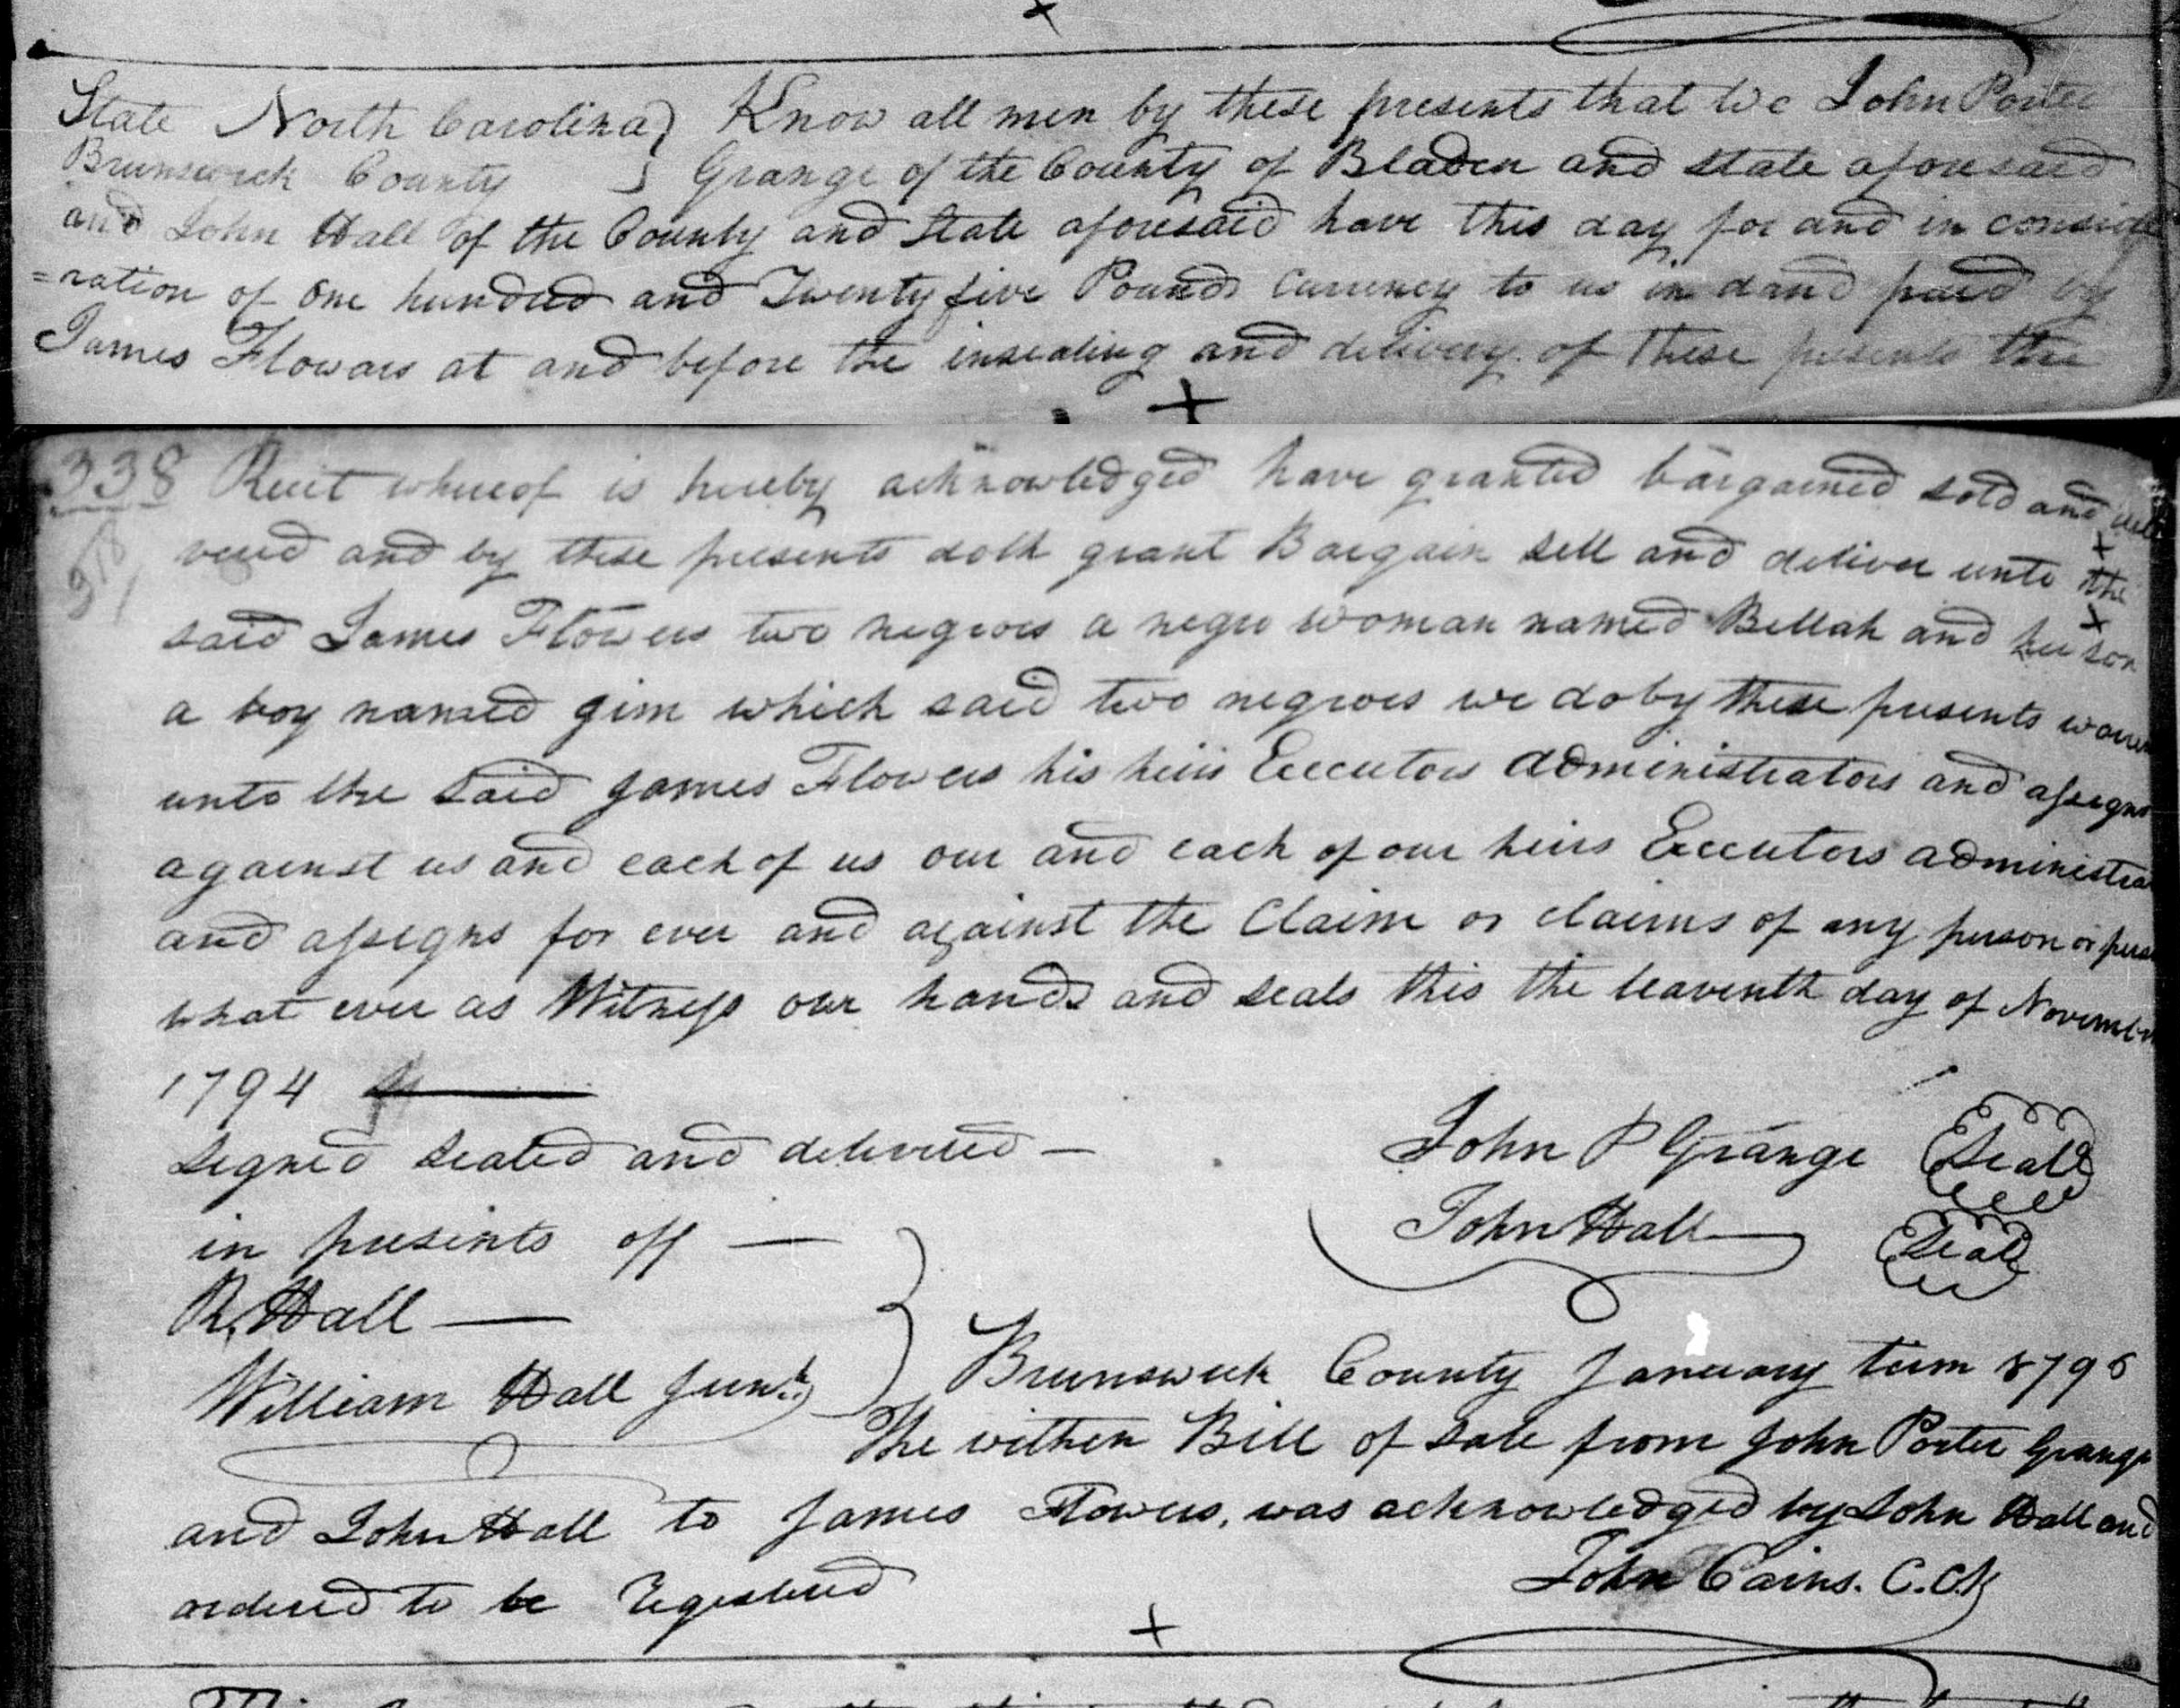 State North Carolina } Know all men by these presents that we John Porter
Brunswick County } Grange of the County of Bladen and State aforesaid
and John Hall of the County and State aforesaid have this day for and in conside
=ration of One hundred and Twenty five Pounds Currency to us in dand paid by
James Flowars at and before the insealing and delivery of these presents the
338 Receit whereof is hereby acknowledged have granted bargained sold and deli
vered and by these presents doth grant Bargain sell and deliver unto the
said James Flowers two negroes a negro woman named Bellah and her son
a boy named gim which said two negroes we do by these presents
unto the said James Flowers his heirs Executors administrators and assigns
against us and each of us our and each of our heirs Executors administra
and assigns for ever and against the Claim or claims of any person or
what ever as Witness our hands and seals this the leaventh day of November
1794
signed sealed and delivered —
John P Grange Seal
in presints off —
John Hall Seal
R. Hall —
William Hall Junr. } Brunswick County January term 1796
The within Bill of Sale from John Porter Grange
and John Hall to James Flowers, was acknowledged by John Hall and
ordered to be Registered
John Cains. C.Ck